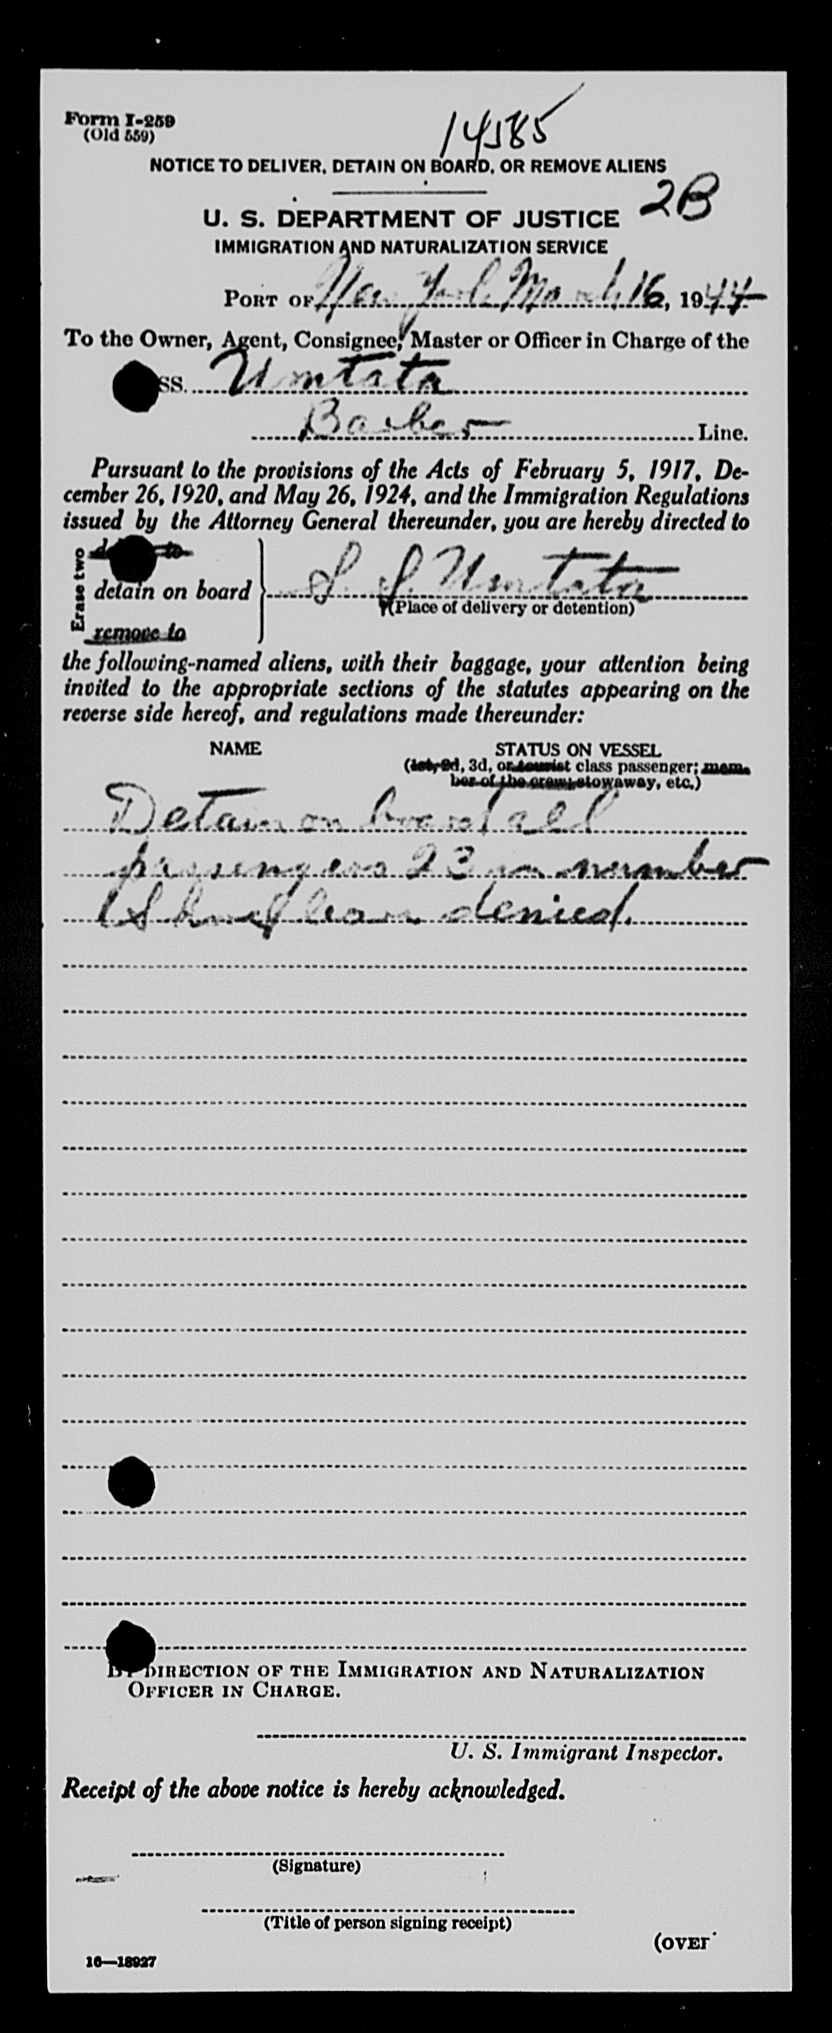 Form I-259
(Old 559)
14585
NOTICE TO DELIVER, DETAIN ON BOARD, OR REMOVE ALIENS
2B
U. S. DEPARTMENT OF JUSTICE
IMMIGRATION AND NATURALIZATION SERVICE
PORT OF New York March 16, 1944
To the Owner, Agent, Consignee, Master or Officer in Charge of the
SS. Umtata
Barber Line.
Pursuant to the provisions of the Acts of February 5, 1917, De-
cember 26, 1920, and May 26, 1924, and the Immigration Regulations
issued by the Attorney General thereunder, you are hereby directed to
Erase two
detain on board S. S. Umtata
(Place of delivery or detention)
remove to
the following-named aliens, with their baggage, your attention being
invited to the appropriate sections of the statutes appearing on the
reverse side hereof, and regulations made thereunder:
NAME STATUS ON VESSEL
(1st, 2d, 3d, or tourist class passenger; mem-
ber of the crew, stowaway, etc.)
Detain on board all
passengers 23 in number
(Shore leave denied.
BY DIRECTION OF THE IMMIGRATION AND NATURALIZATION
OFFICER IN CHARGE.
U. S. Immigrant Inspector.
Receipt of the above notice is hereby acknowledged.
(Signature)
(Title of person signing receipt)
(OVER
16—18927